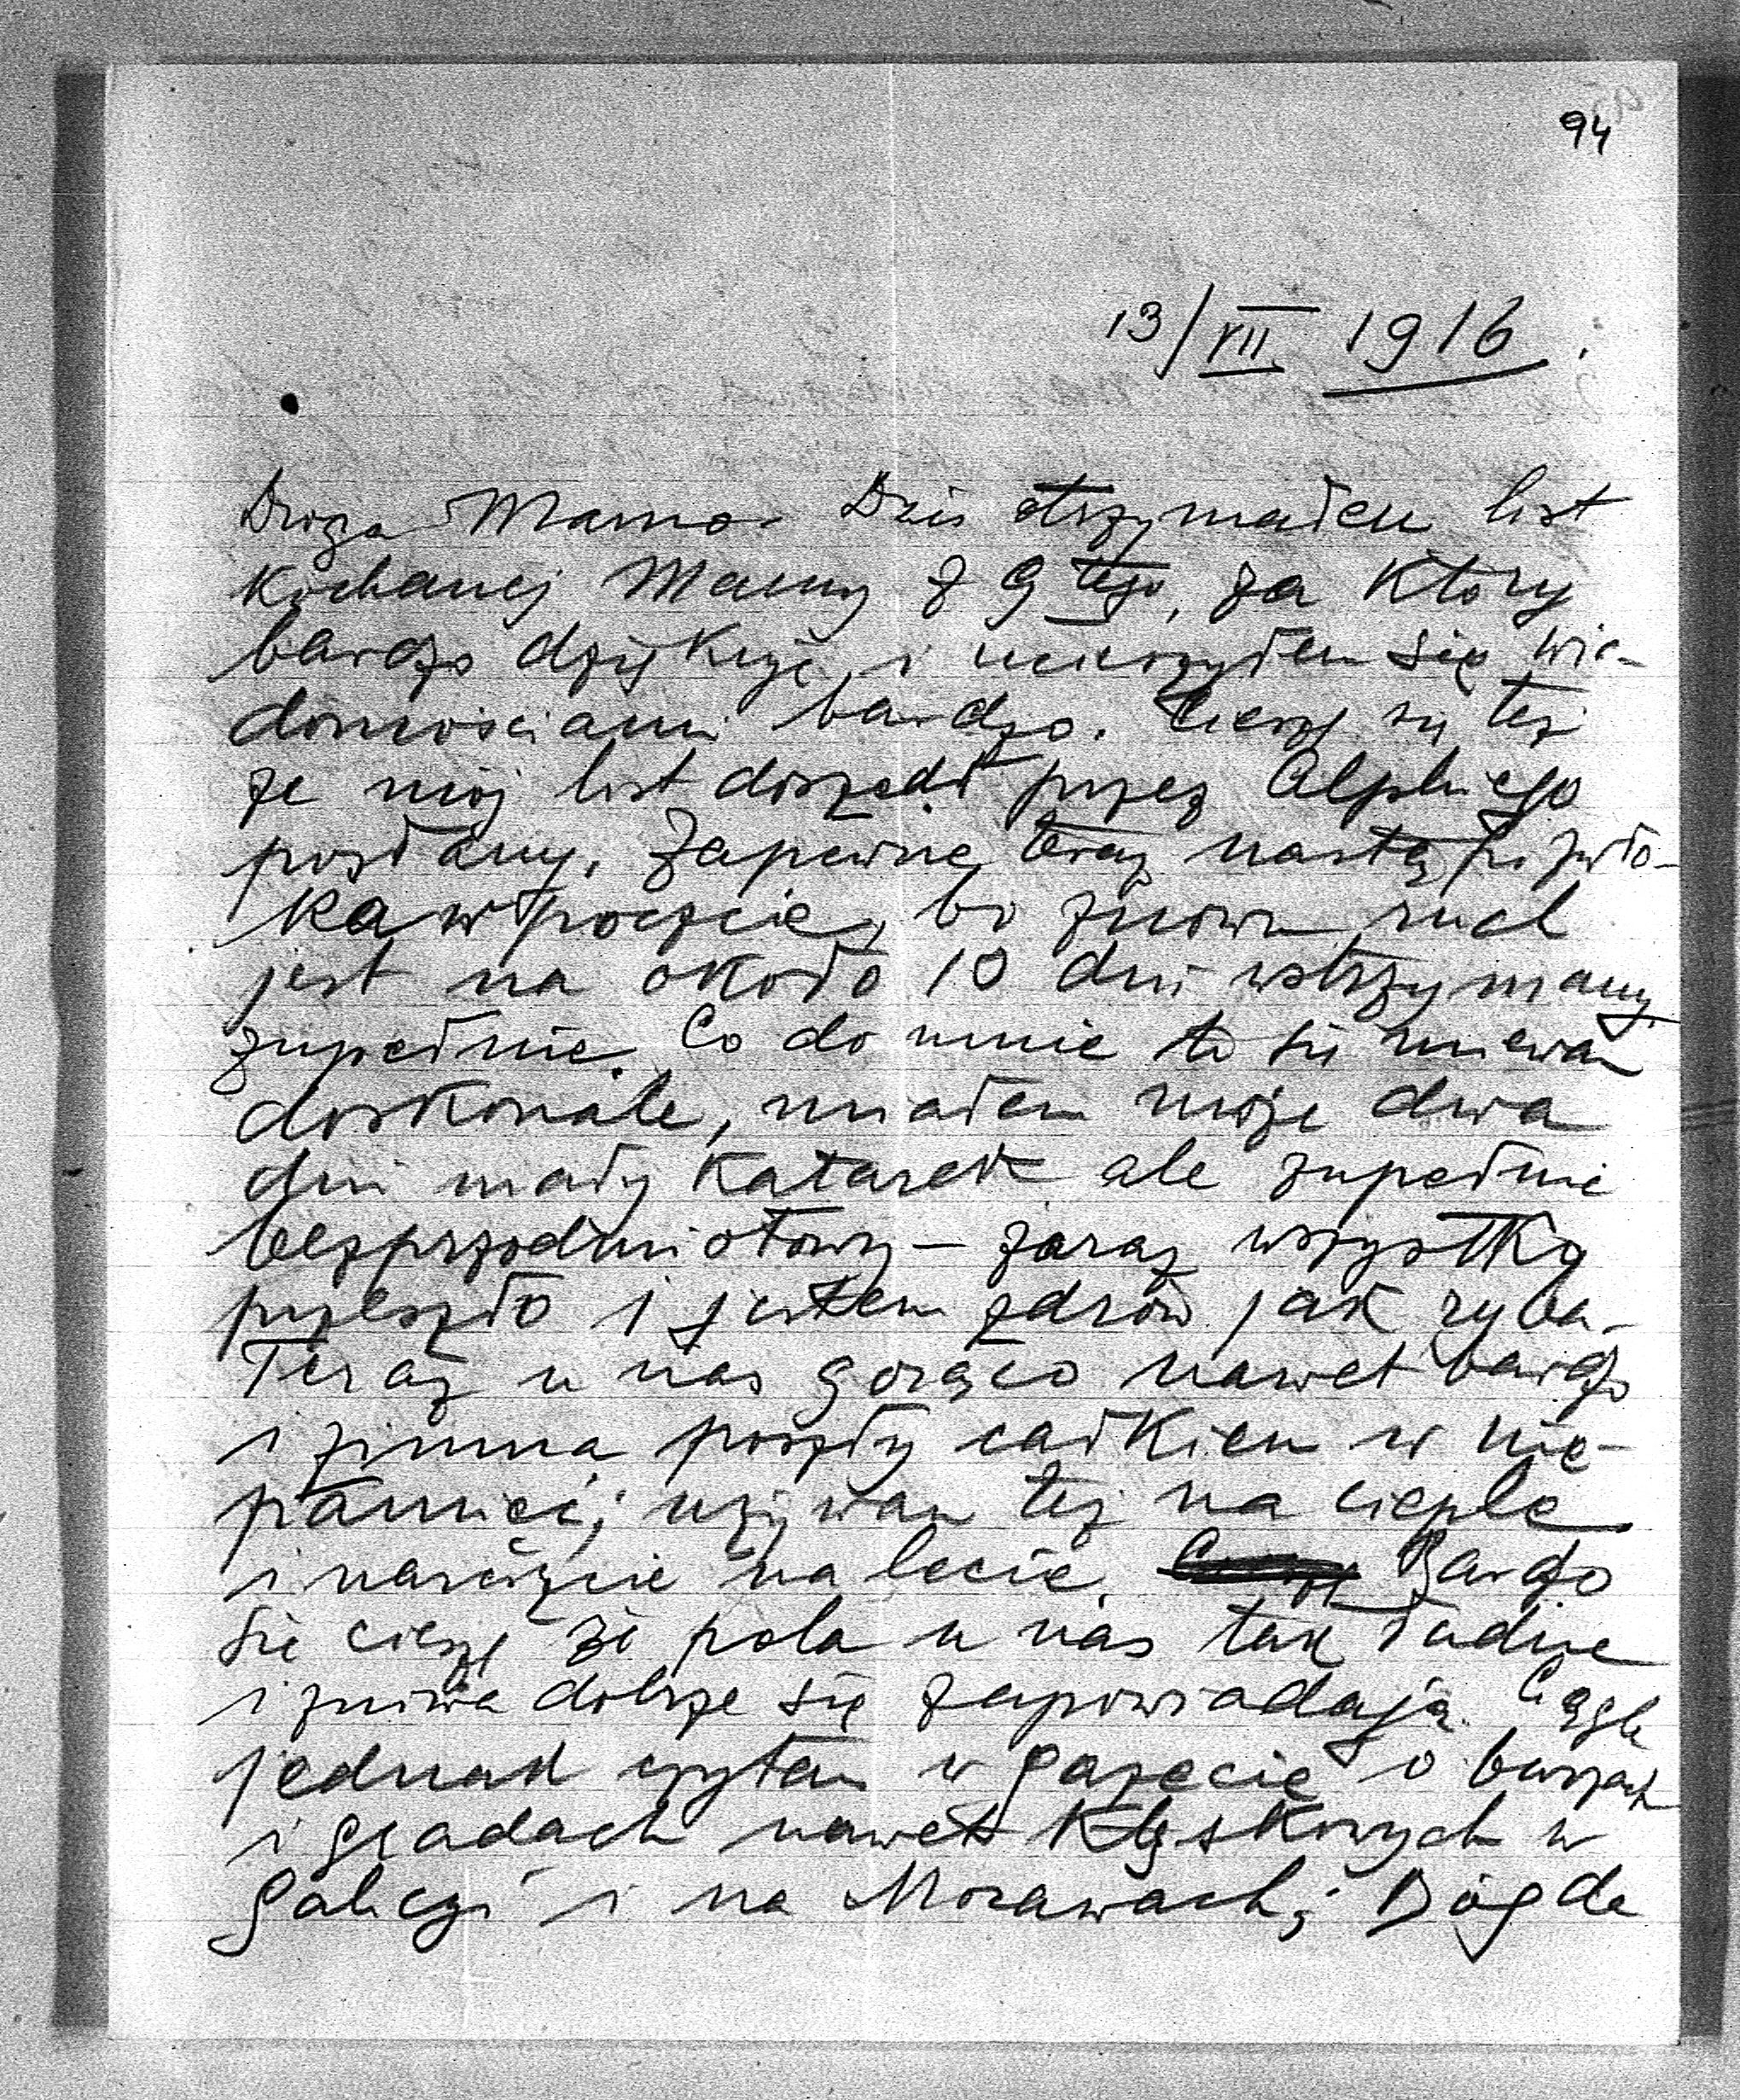 94
13/VII. 1916.
Droga Mamo. Dziś otrzymałem list
Kochanej Mamy z 9 tego, za który
bardzo dziękuję i ucieszyłem się wia-
domościami bardzo. Cieszę się też
że mój list doszedł przez
posłany. Zapewne teraz nastąpi zwło-
ka w poczcie, bo znowu ruch
jest na około 10 dni wstrzymany
zupełnie. Co do mnie to się miewam
doskonale, miałem może dwa
dni mały katarek ale zupełnie
bezprzedmiotowy – zaraz wszystko
przeszło i jestem zdrów jak ryba.
Teraz u nas gorąco nawet bardzo
i zimna poszły całkiem w nie-
pamięć; używam też na cieple
i nareszcie na lecie. Bardzo
się cieszę że pola u nas tak ładne
i żniwa dobrze się zapowiadają. Ciągle
jednak czytam w gazecie o burzach
i gradach nawet klęskowych w
Galicyi i na Morawach; Bóg da